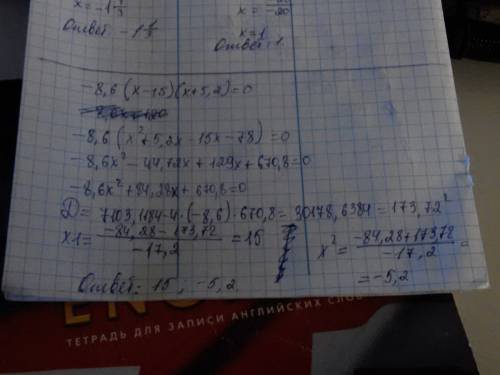 x = -1 1/3
Ответ -1 1/3
x = /-20
x = 1
Ответ: 1.
-8,6 (x-15)(x+5,2)=0
-8,6 (x²+5,2x-15x-78)=0
-8,6x²-44,72x+129x+670,8=0
-8,6x²+84,28x+670,8=0
D = 7103,1184-4·(-8,6)·670,8= 30178,6384=173,72²
x1= (-84,28-173,72)/(-17,2) =15
x² = (-84,28+173,72)/(-17,2) =
= -5,2
Ответ: 15 ; -5,2.
ТЕТРАДЬ ДЛЯ ЗАПИСИ АНГЛИЙСКИХ СЛОВ